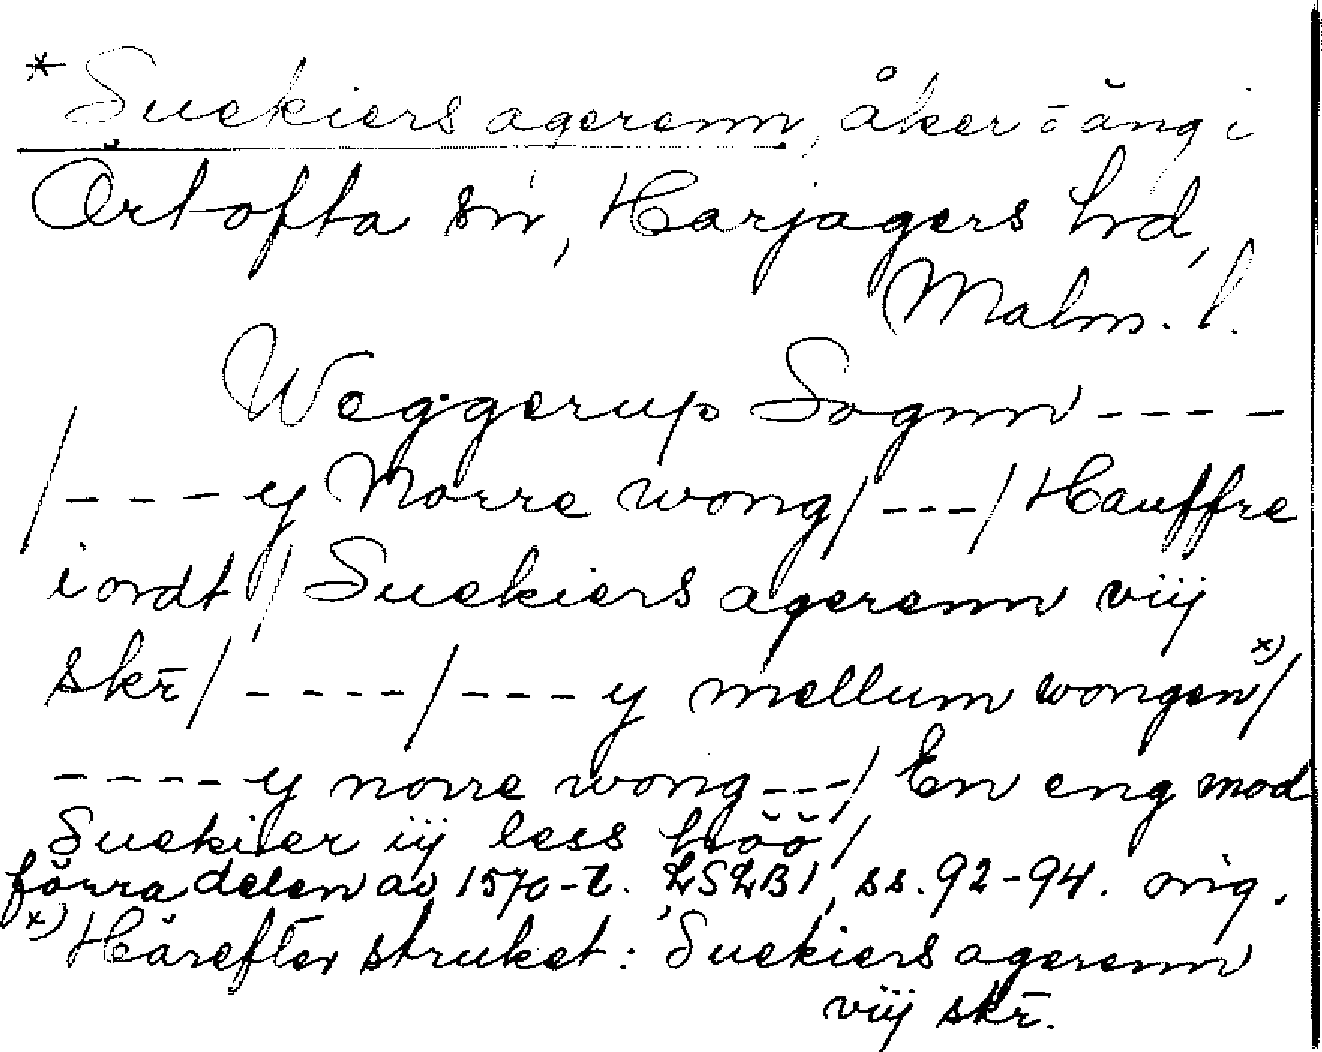 * Suekiers agerenn, åker o äng i
Örtofta sn, Harjagers hd,
Malm. l.
Weggerup Sognn ----
/---- y Norre wong/---/ Hauffre
iordt / Suekiers agerenn viij
skr̄/----/--- y mellum wongen x)/
---- y norre wong---/ En eng mod
Suekiær iij less höö/
förra delen av 1570-t. LSLB1, ss. 92-94. orig.
x) Härefter struket: Suekiers agerenn
viij skr̄.